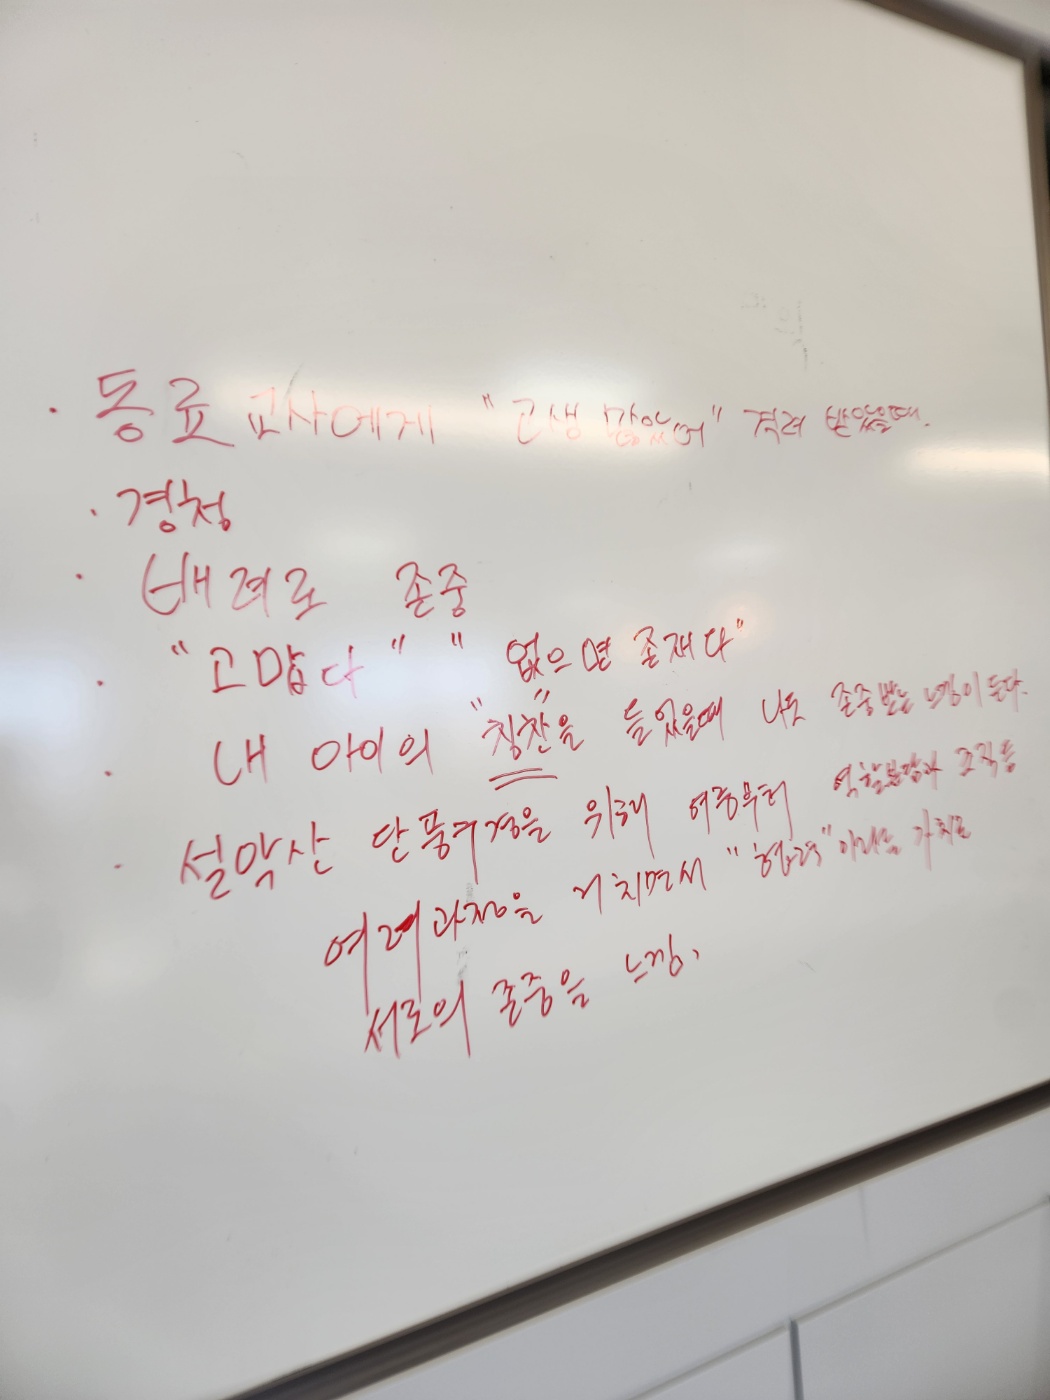 · 동료 교사에게 "고생 많았어" 격려 받았을때.
· 경청
· 배려로 존중
· "고맙다" " 없으면 존재다"
· 내 아이의 "칭찬"을 들었을때 나도 존중받는 느낌이 든다.
· 설악산 단풍여경을 위해 여름부터 역할분담과 조직등
여러과정을 거치면서 "협력"이라는 가치로
서로의 존중을 느낌.